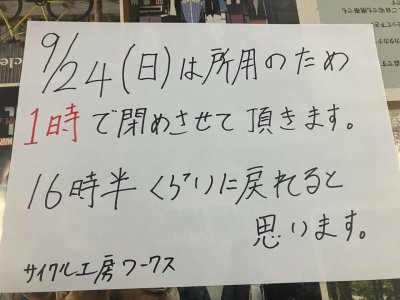 9/24(日)は所用のため
1時で閉めさせて頂きます。
16時半くらいに戻れると
思います。
サイクル工房ワークス